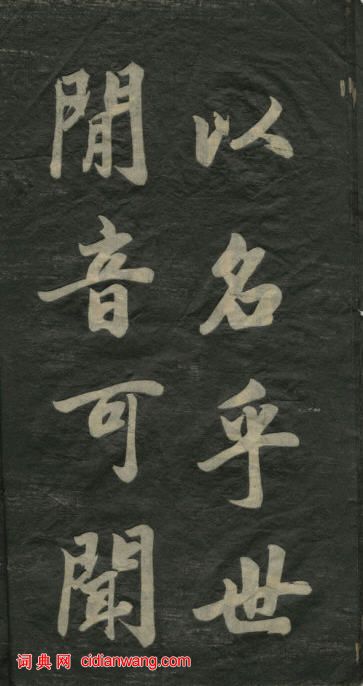 以名乎世
閒音可聞
词典网 cidianwang.com